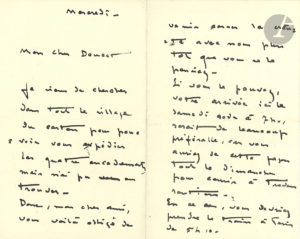 Mercredi -
Mon cher Doucet
Je viens de chercher
dans tout le village
du carton pour pou-
voir vous expédier
les quatre encadrements
mais n'ai pu en
trouver -
Donc, mon cher ami,
vous voilà obligé de
venir passer la
avec nous plus
tôt que vous ne le
pensiez -
Si vous le pouvez,
votre arrivée ici le
samedi soir à 7h,
serait de beaucoup
préférable, car vous
auriez de cette façon
tout le dimanche
pour
En ce cas, vous devriez
prendre le train à Paris
de 5h10 -